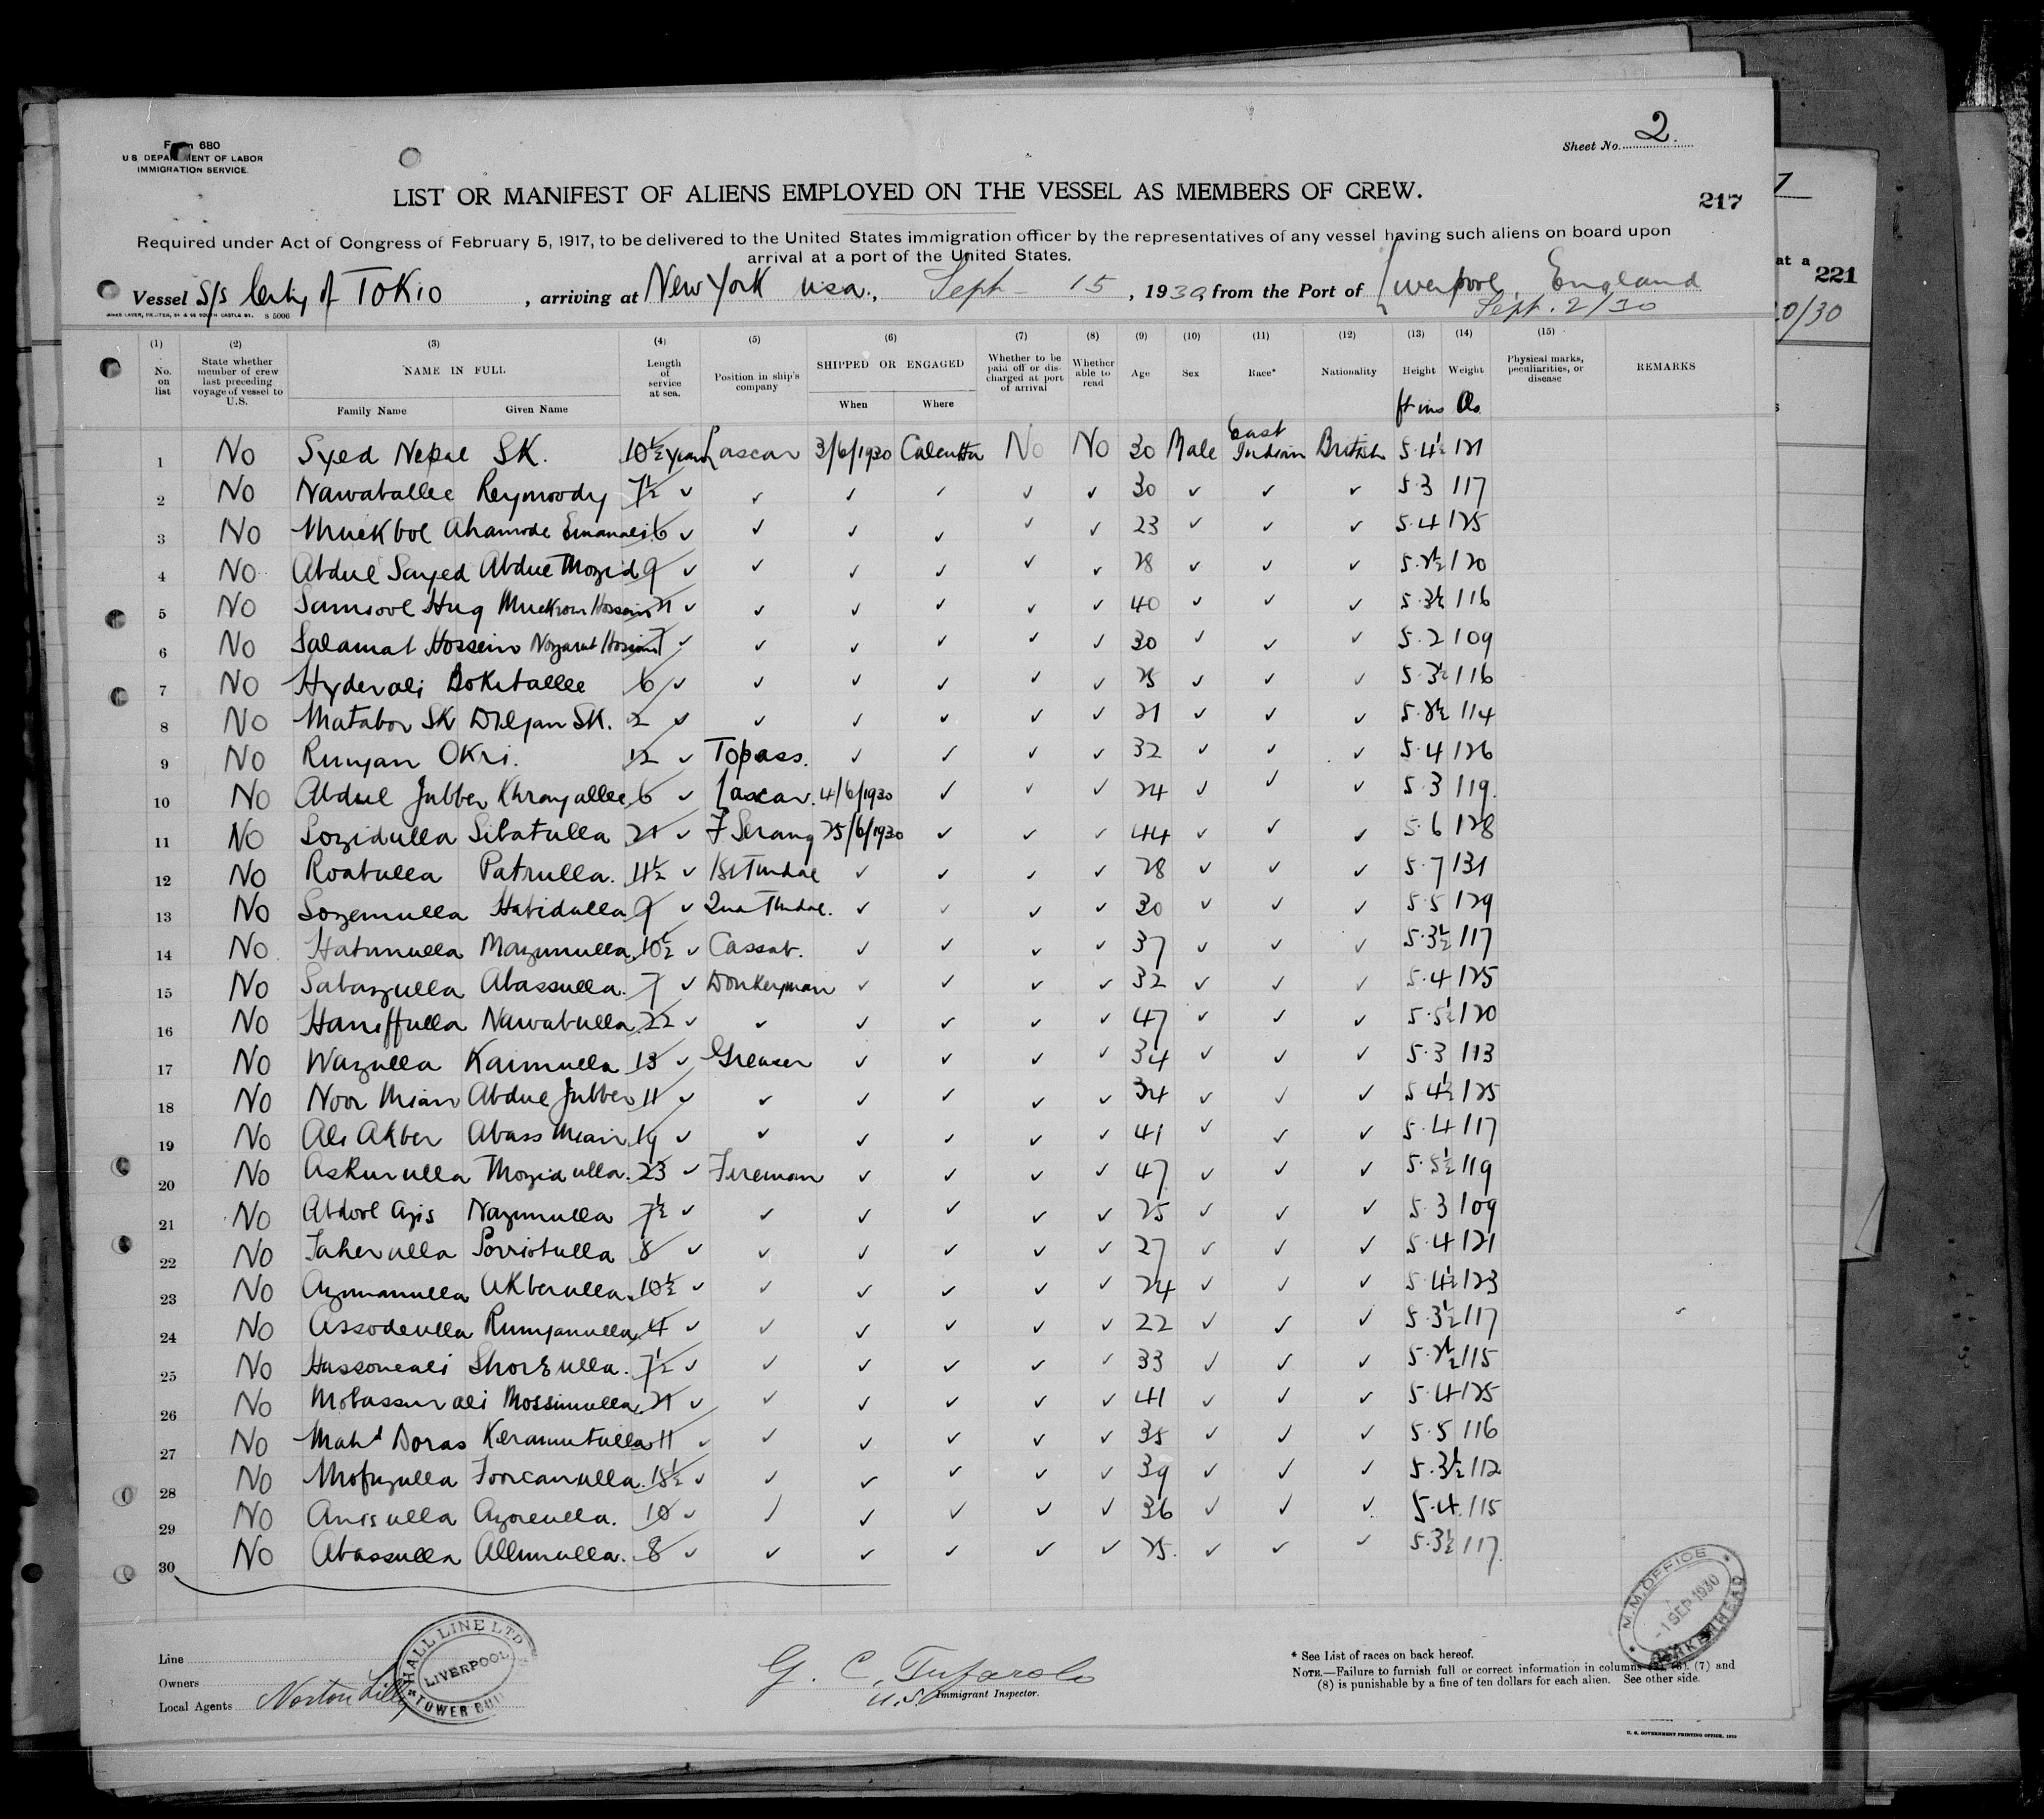 Form 680
U.S. DEPARTMENT OF LABOR
IMMIGRATION SERVICE.
Sheet No. 2.
LIST OR MANIFEST OF ALIENS EMPLOYED ON THE VESSEL AS MEMBERS OF CREW.
217
Required under Act of Congress of February 5, 1917, to be delivered to the United States immigration officer by the representatives of any vessel having such aliens on board upon
arrival at a port of the United States.
at a 221
Vessel S/S City of Tokio, arriving at New York usa., Sept 15, 1930 from the Port of Liverpool, England
Sept. 2/30
0/30
S 5006
(1) (2) (3) (4) (5) (6) (7) (8) (9) (10) (11) (12) (13) (14) (15)
No. on list State whether member of crew last preceding voyage of vessel to U.S. NAME IN FULL Length of service at sea. Position in ship's company SHIPPED OR ENGAGED Whether to be paid off or discharged at port of arrival Whether able to read Age Sex Race* Nationality Height Weight Physical marks, peculiarities, or disease REMARKS
Family Name Given Name When Where ft ins
1 No Syed Nepal SK. 10½ years Lascar 3/6/1930 Calcutta No No 30 Male East Indian British 5.4½ 121
2 No Nawaballee Reymoody 7½ ✓ ✓ ✓ ✓ ✓ ✓ 30 ✓ ✓ ✓ 5.3 117
3 No Muckbol Ahamode 6 ✓ ✓ ✓ ✓ ✓ ✓ 23 ✓ ✓ ✓ 5.4 125
4 No Abdul Sayed Abdul Mozid 9 ✓ ✓ ✓ ✓ ✓ ✓ 28 ✓ ✓ ✓ 5.2½ 120
5 No Samsool Huq Muckrom Hossein 21 ✓ ✓ ✓ ✓ ✓ ✓ 40 ✓ ✓ ✓ 5.3½ 116
6 No Salamat Hossein 7 ✓ ✓ ✓ ✓ ✓ ✓ 30 ✓ ✓ ✓ 5.2 109
7 No Hyderali Bokitallee 6 ✓ ✓ ✓ ✓ ✓ ✓ 25 ✓ ✓ ✓ 5.3½ 116
8 No Matabor SK Diljan SK. 2 ✓ ✓ ✓ ✓ ✓ ✓ 21 ✓ ✓ ✓ 5.2½ 114
9 No Runjan Okri. 12 ✓ Topass. ✓ ✓ ✓ ✓ 32 ✓ ✓ ✓ 5.4 126
10 No Abdul Jubber Khronjallee 6 ✓ Lascar. 4/6/1930 ✓ ✓ ✓ 24 ✓ ✓ ✓ 5.3 119.
11 No Sozidulla Sibatulla 21 ✓ F Serang 25/6/1930 ✓ ✓ ✓ 44 ✓ ✓ ✓ 5.6 128
12 No Roabulla Patrulla. 11½ ✓ 1st Tindal ✓ ✓ ✓ ✓ 28 ✓ ✓ ✓ 5.7 131
13 No Sozemulla Habidulla 9 ✓ 2nd Tindal. ✓ ✓ ✓ ✓ 30 ✓ ✓ ✓ 5.5 129
14 No Hatimulla Mozumulla 10½ ✓ Cassab. ✓ ✓ ✓ ✓ 37 ✓ ✓ ✓ 5.3½ 117
15 No Sabazulla Abassulla. 7 ✓ Donkeyman ✓ ✓ ✓ ✓ 32 ✓ ✓ ✓ 5.4 125
16 No Haniffulla Nawabulla 22 ✓ ✓ ✓ ✓ ✓ ✓ 47 ✓ ✓ ✓ 5.5½ 120
17 No Wazulla Kaimulla 13 ✓ Greaser ✓ ✓ ✓ ✓ 34 ✓ ✓ ✓ 5.3 113
18 No Noor Mian Abdul Jubber 11 ✓ ✓ ✓ ✓ ✓ ✓ 34 ✓ ✓ ✓ 5.4½ 125
19 No Ali Akber Abass Mian 19 ✓ ✓ ✓ ✓ ✓ ✓ 41 ✓ ✓ ✓ 5.4 117
20 No Askurulla Mozidulla. 23 ✓ Fireman ✓ ✓ ✓ ✓ 47 ✓ ✓ ✓ 5.5½ 119
21 No Abdool Azis Nazimulla 7½ ✓ ✓ ✓ ✓ ✓ ✓ 25 ✓ ✓ ✓ 5.3 109
22 No Taherulla Sorriotulla 8 ✓ ✓ ✓ ✓ ✓ ✓ 27 ✓ ✓ ✓ 5.4 121
23 No Azmanulla Akberulla. 10½ ✓ ✓ ✓ ✓ ✓ ✓ 24 ✓ ✓ ✓ 5.4½ 123
24 No Assodeulla Rumjanulla 4 ✓ ✓ ✓ ✓ ✓ ✓ 22 ✓ ✓ ✓ 5.3½ 117
25 No Hassoneali Shorfulla. 7½ ✓ ✓ ✓ ✓ ✓ ✓ 33 ✓ ✓ ✓ 5.2½ 115
26 No Mobassurali Mossimulla 21 ✓ ✓ ✓ ✓ ✓ ✓ 41 ✓ ✓ ✓ 5.4 125
27 No Mahd Doras Keramutulla 11 ✓ ✓ ✓ ✓ ✓ ✓ 35 ✓ ✓ ✓ 5.5 116
28 No Mofuzulla Foorcanulla. 15½ ✓ ✓ ✓ ✓ ✓ ✓ 39 ✓ ✓ ✓ 5.3½ 112
29 No Anisulla Azoreulla. 10 ✓ ✓ ✓ ✓ ✓ ✓ 36 ✓ ✓ ✓ 5.4. 115
30 No Abassulla Allimulla. 8 ✓ ✓ ✓ ✓ ✓ ✓ 25. ✓ ✓ ✓ 5.3½ 117.
M.M. OFFICE
-1 SEP 1930
BIRKENHEAD
Line
Owners
Local Agents Norton Lilly
HALL LINE LTD
LIVERPOOL
TOWER BUI
G. C. Tufarolo
U.S. Immigrant Inspector.
* See List of races on back hereof.
NOTE.—Failure to furnish full or correct information in columns (7) and
(8) is punishable by a fine of ten dollars for each alien. See other side.
U. S. GOVERNMENT PRINTING OFFICE.